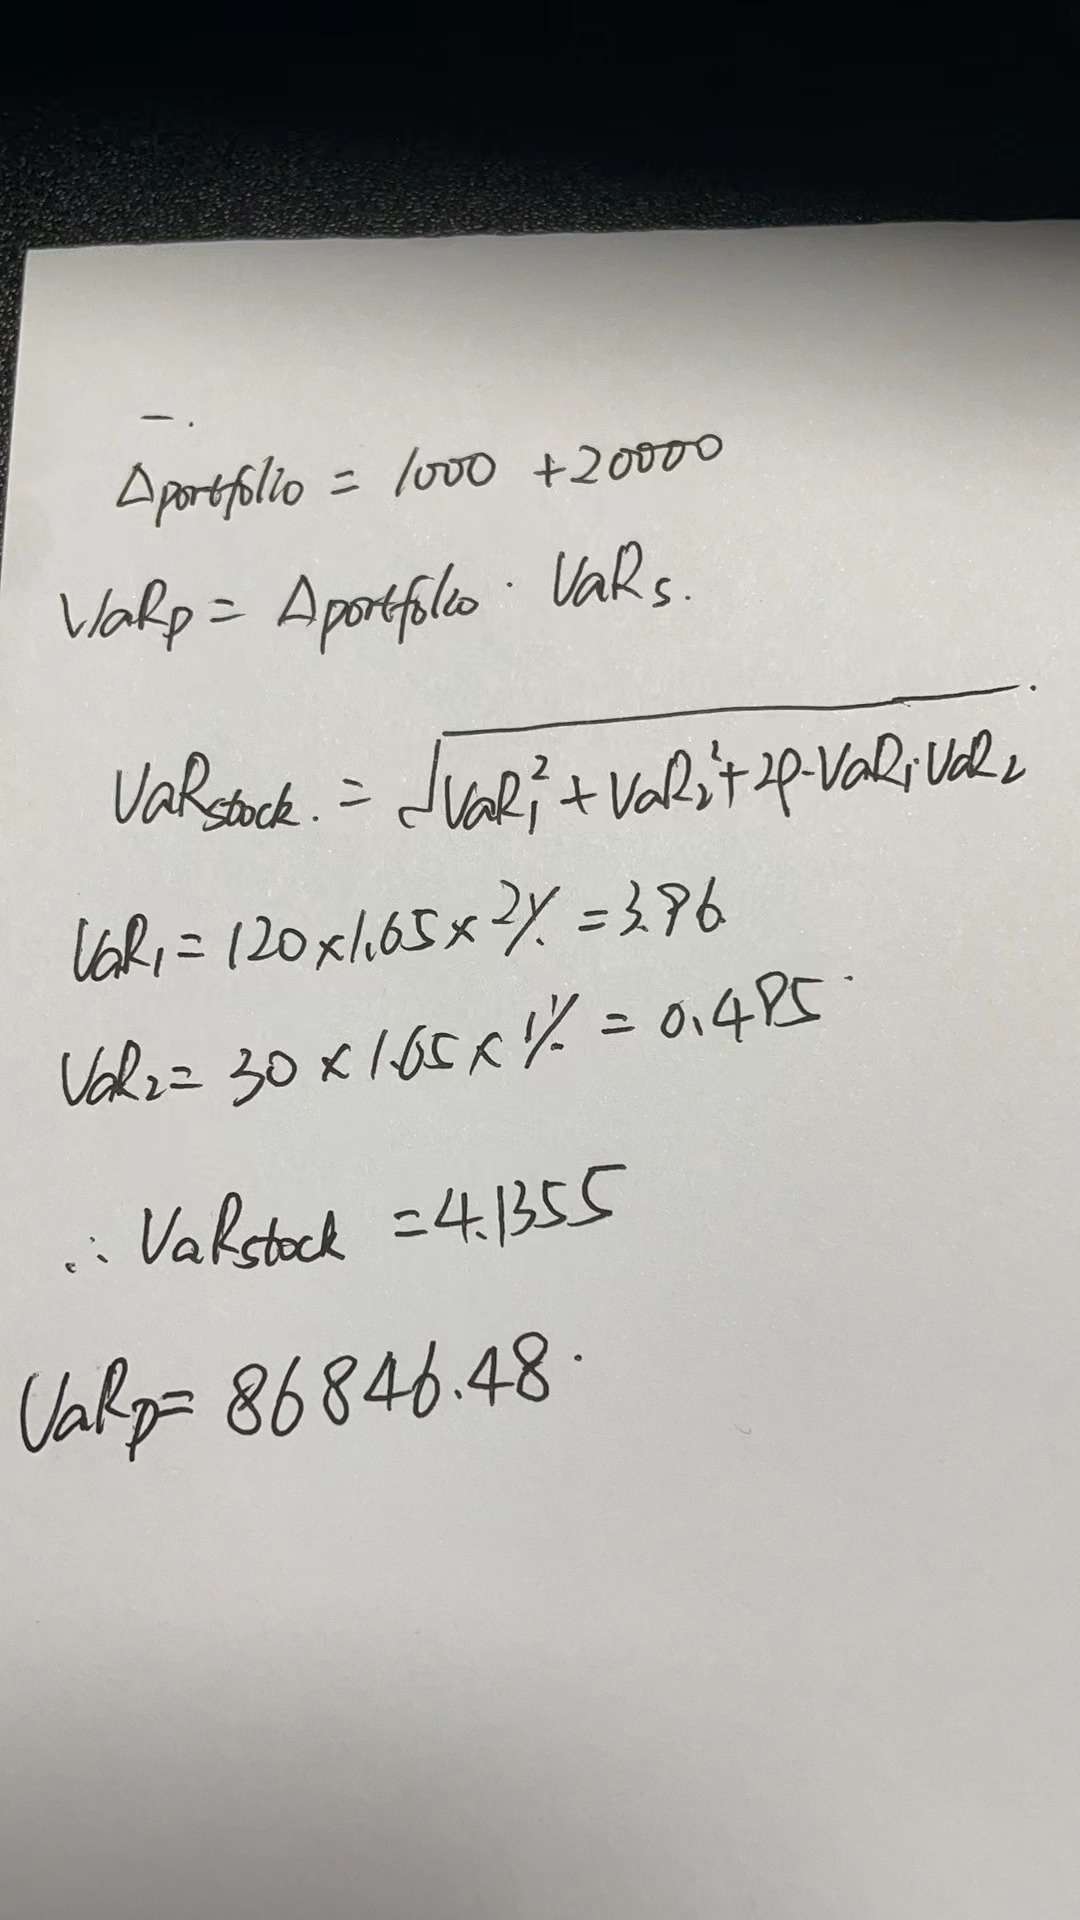 一.
Δportfolio = 1000 + 20000
VaRp = Δportfolio · VaRs.
VaRstock. = √(VaR₁² + VaR₂² + 2ρ·VaR₁·VaR₂)
VaR₁ = 120 × 1.65 × 2% = 3.96
VaR₂ = 30 × 1.65 × 1% = 0.495
∴ VaRstock = 4.1355
VaRp = 86846.48.